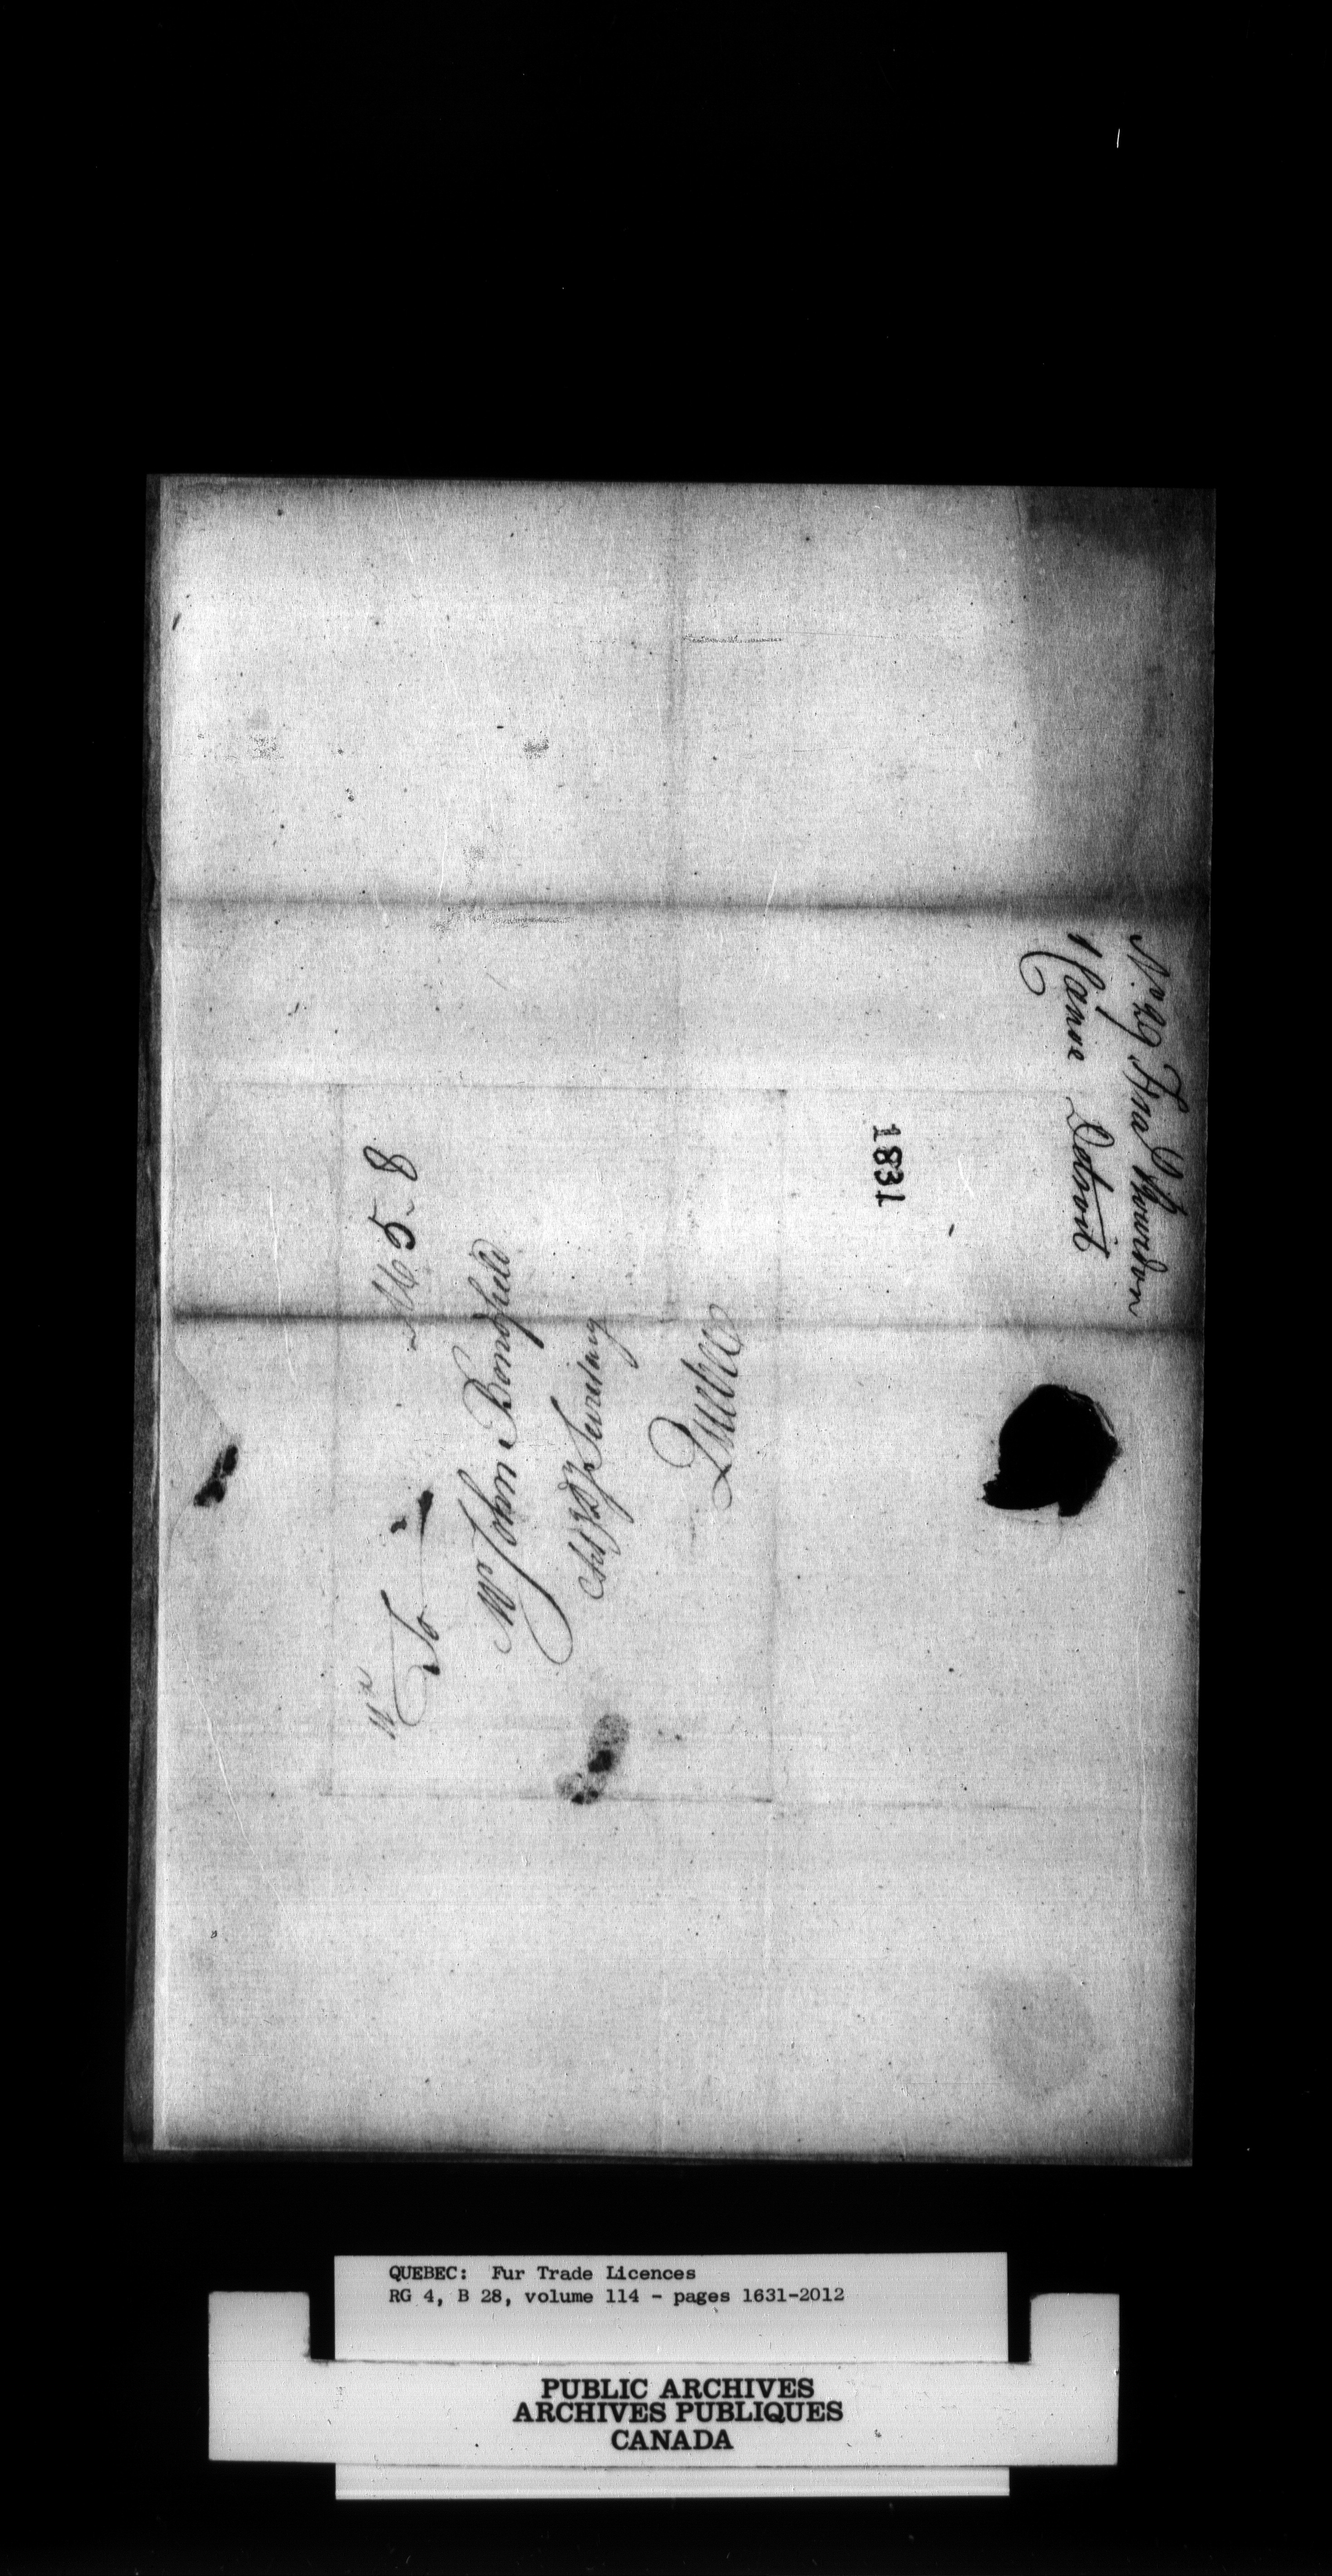 Nº 29 Fra Thouron
1 Canoe Detroit
1831
M 5.. 8
To
Mr John Bonfield
Secretary
Quebec
QUEBEC: Fur Trade Licences
RG 4, B 28, volume 114 - pages 1631-2012
PUBLIC ARCHIVES
ARCHIVES PUBLIQUES
CANADA